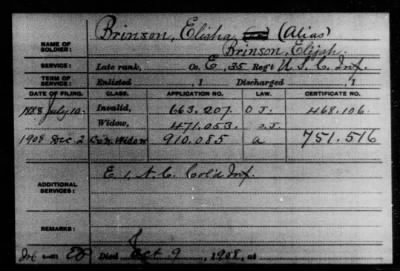 NAME OF SOLDIER: Brinson, Elisha (Alias)
Brinson, Elijah.
SERVICE: Late rank, Co. E, 35 Reg't U.S.C. Inf.
TERM OF SERVICE: Enlisted , 1 Discharged , 1
DATE OF FILING. CLASS. APPLICATION NO. LAW. CERTIFICATE NO.
1888 July 10. Invalid, 663.207. O.J. 468.106.
Widow, 471.053. O.J.
1908 Dec 2 Con. Widow 910.085 a 751.516
ADDITIONAL SERVICES: E. 1, N.C. Col'd Inf.
REMARKS:
Died Oct 9, 1908, at